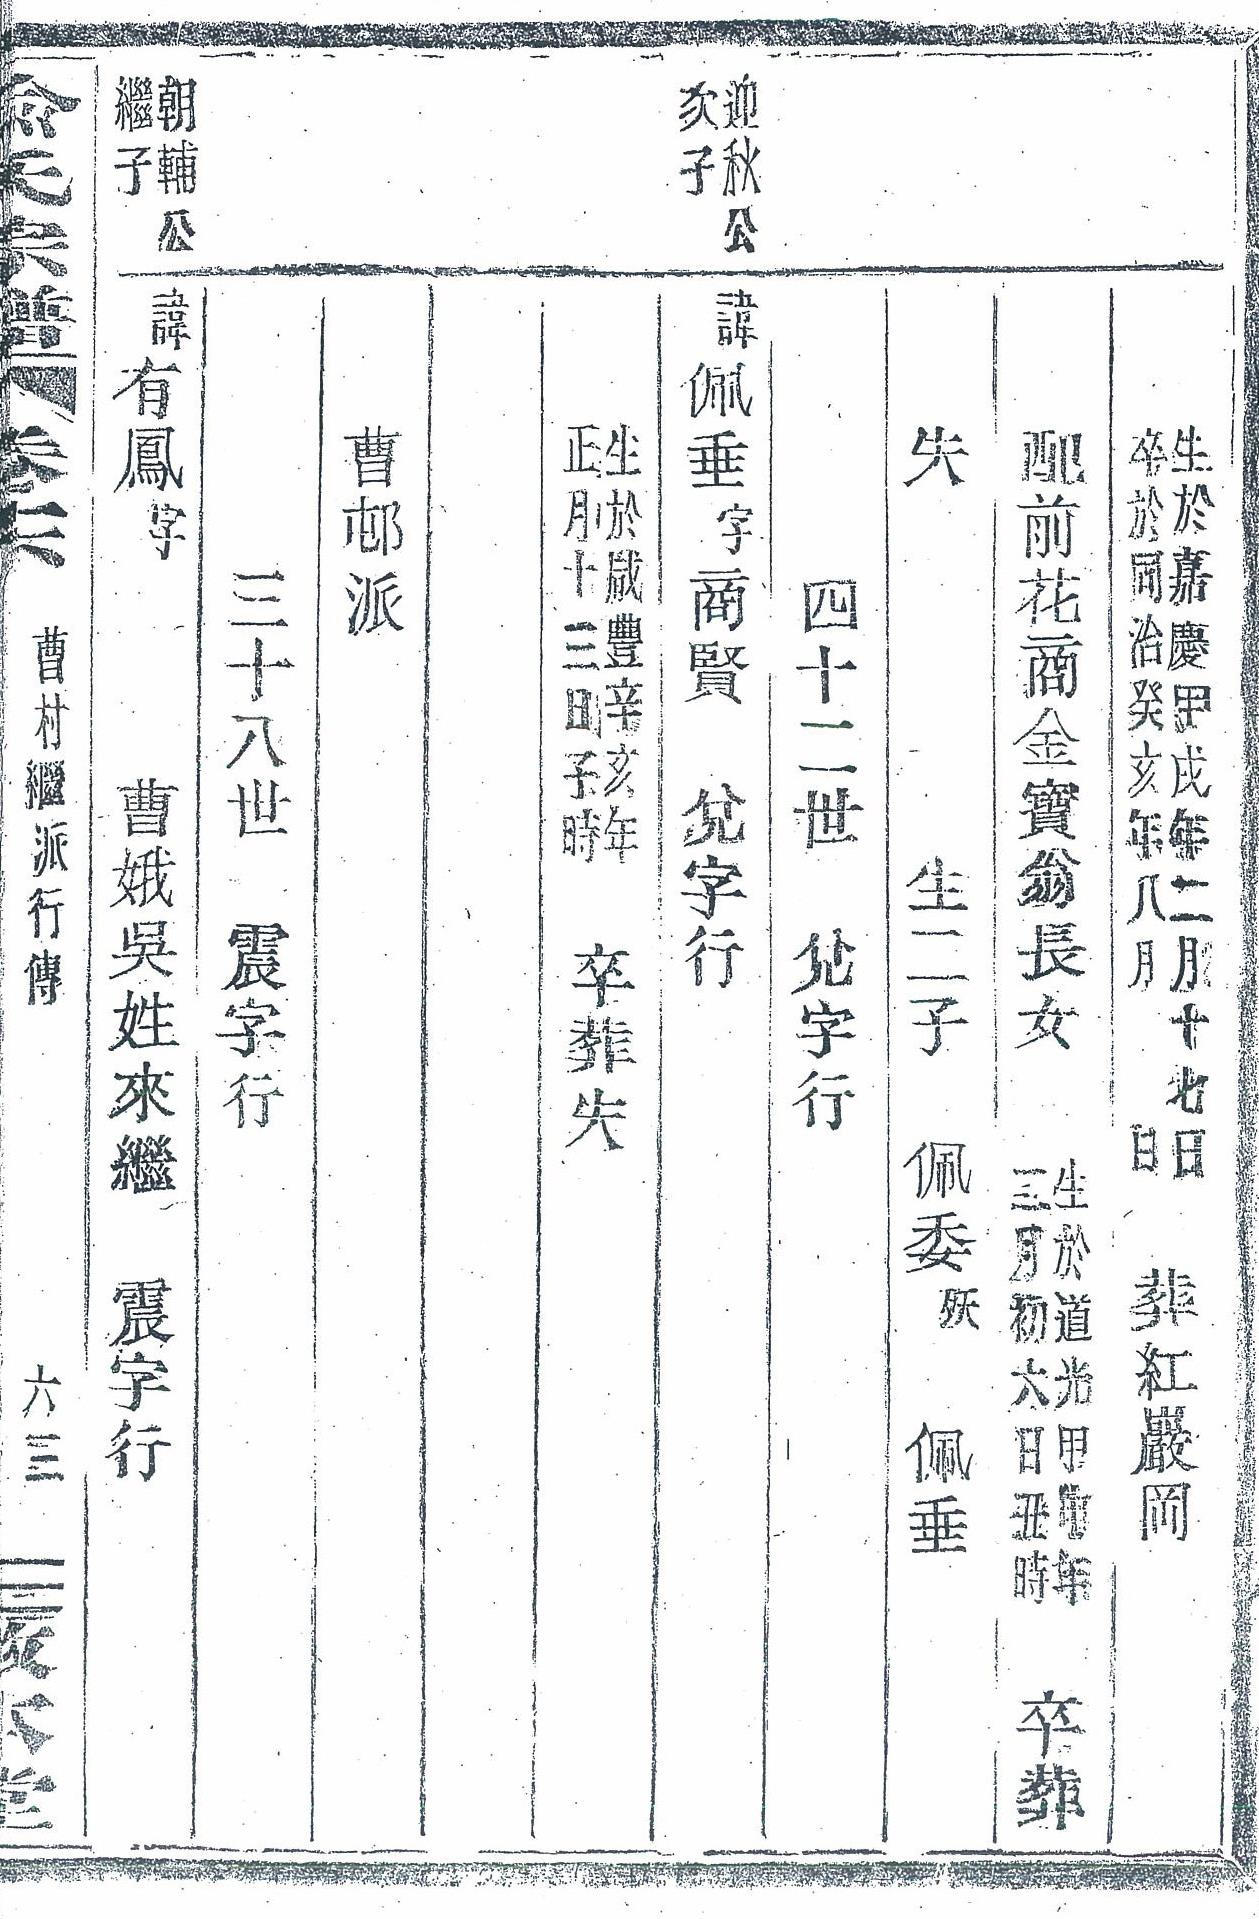 生於嘉慶甲戌年二月十七日
卒於同治癸亥年八月 日
葬紅巖岡
配前花商金寶翁長女
生於道光甲申年
三月初六日丑時
卒葬
失 生二子 佩委 殀 佩垂
四十二世 兌字行
迎秋公
次子
諱佩垂字商賢 兌字行
生於咸豐辛亥年
正月十三日子時
卒葬失
曹邨派
三十八世 震字行
朝輔公
繼子
諱有鳳字 曹娥吳姓來繼 震字行
俞氏宗譜 卷六 曹村繼派行傳 六三